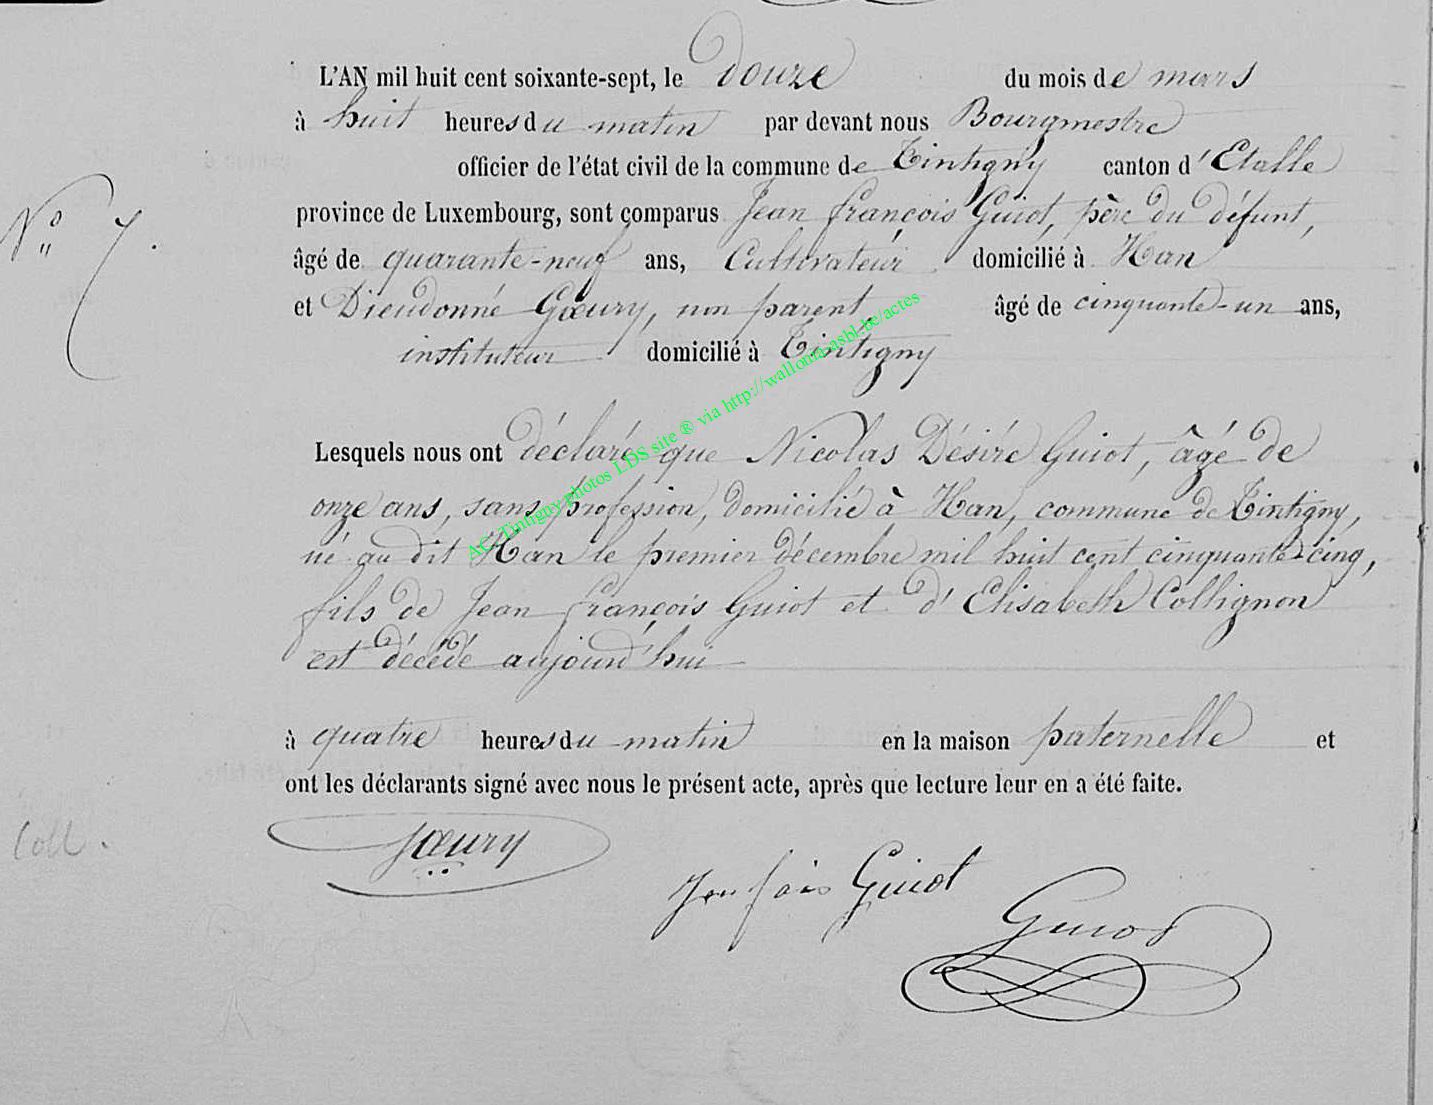 L'AN mil huit cent soixante-sept, le Douze du mois de mars
à huit heures du matin par devant nous Bourgmestre
officier de l'état civil de la commune de Tintigny canton d'Etalle
N° 7.
province de Luxembourg, sont comparus Jean François Guiot, père du défunt,
âgé de quarante-neuf ans, Cultivateur domicilié à Han
et Dieudonné Gœury, non parent, âgé de cinquante-un ans,
instituteur domicilié à Tintigny
AC Tintigny photos LDS site ® via http://wallonia-asbl.be/actes
Lesquels nous ont déclaré que Nicolas Désiré Guiot, âgé de
onze ans, sans profession, domicilié à Han, commune de Tintigny,
né au dit Han le premier décembre mil huit cent cinquante-cinq,
fils de Jean François Guiot et d'Elisabeth Collignon
est décédé aujourd'hui
à quatre heures du matin en la maison paternelle et
ont les déclarants signé avec nous le présent acte, après que lecture leur en a été faite.
Coll.
Gœury
Jean fois Guiot
Guiot